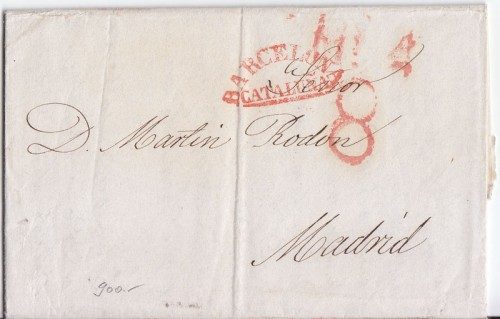 BARCELONA
CATALUÑA
8
Señor
D. Martin Rodon
Madrid
900.-